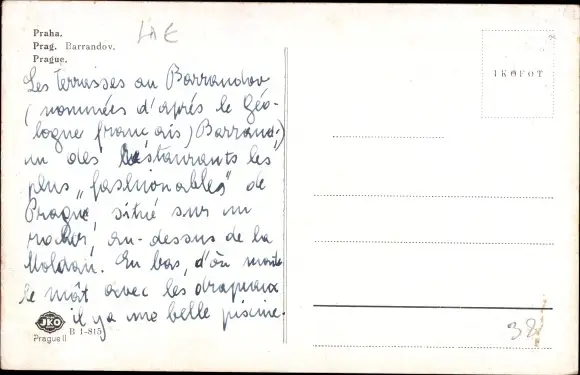 Praha.
Prag. Barrandov.
Prague.
IKOFOT
Les terrasses au Barrandov
(nommées d'après le Géo-
logue français) Barrand,)
un des Restaurants les
plus „fashionables" de
Prague, situé sur un
rocher, au-dessus de la
Moldau. En bas, d'où monte
le mât avec les drapeaux
il y a une belle piscine.
JKO
B 1-815
Prague II
32